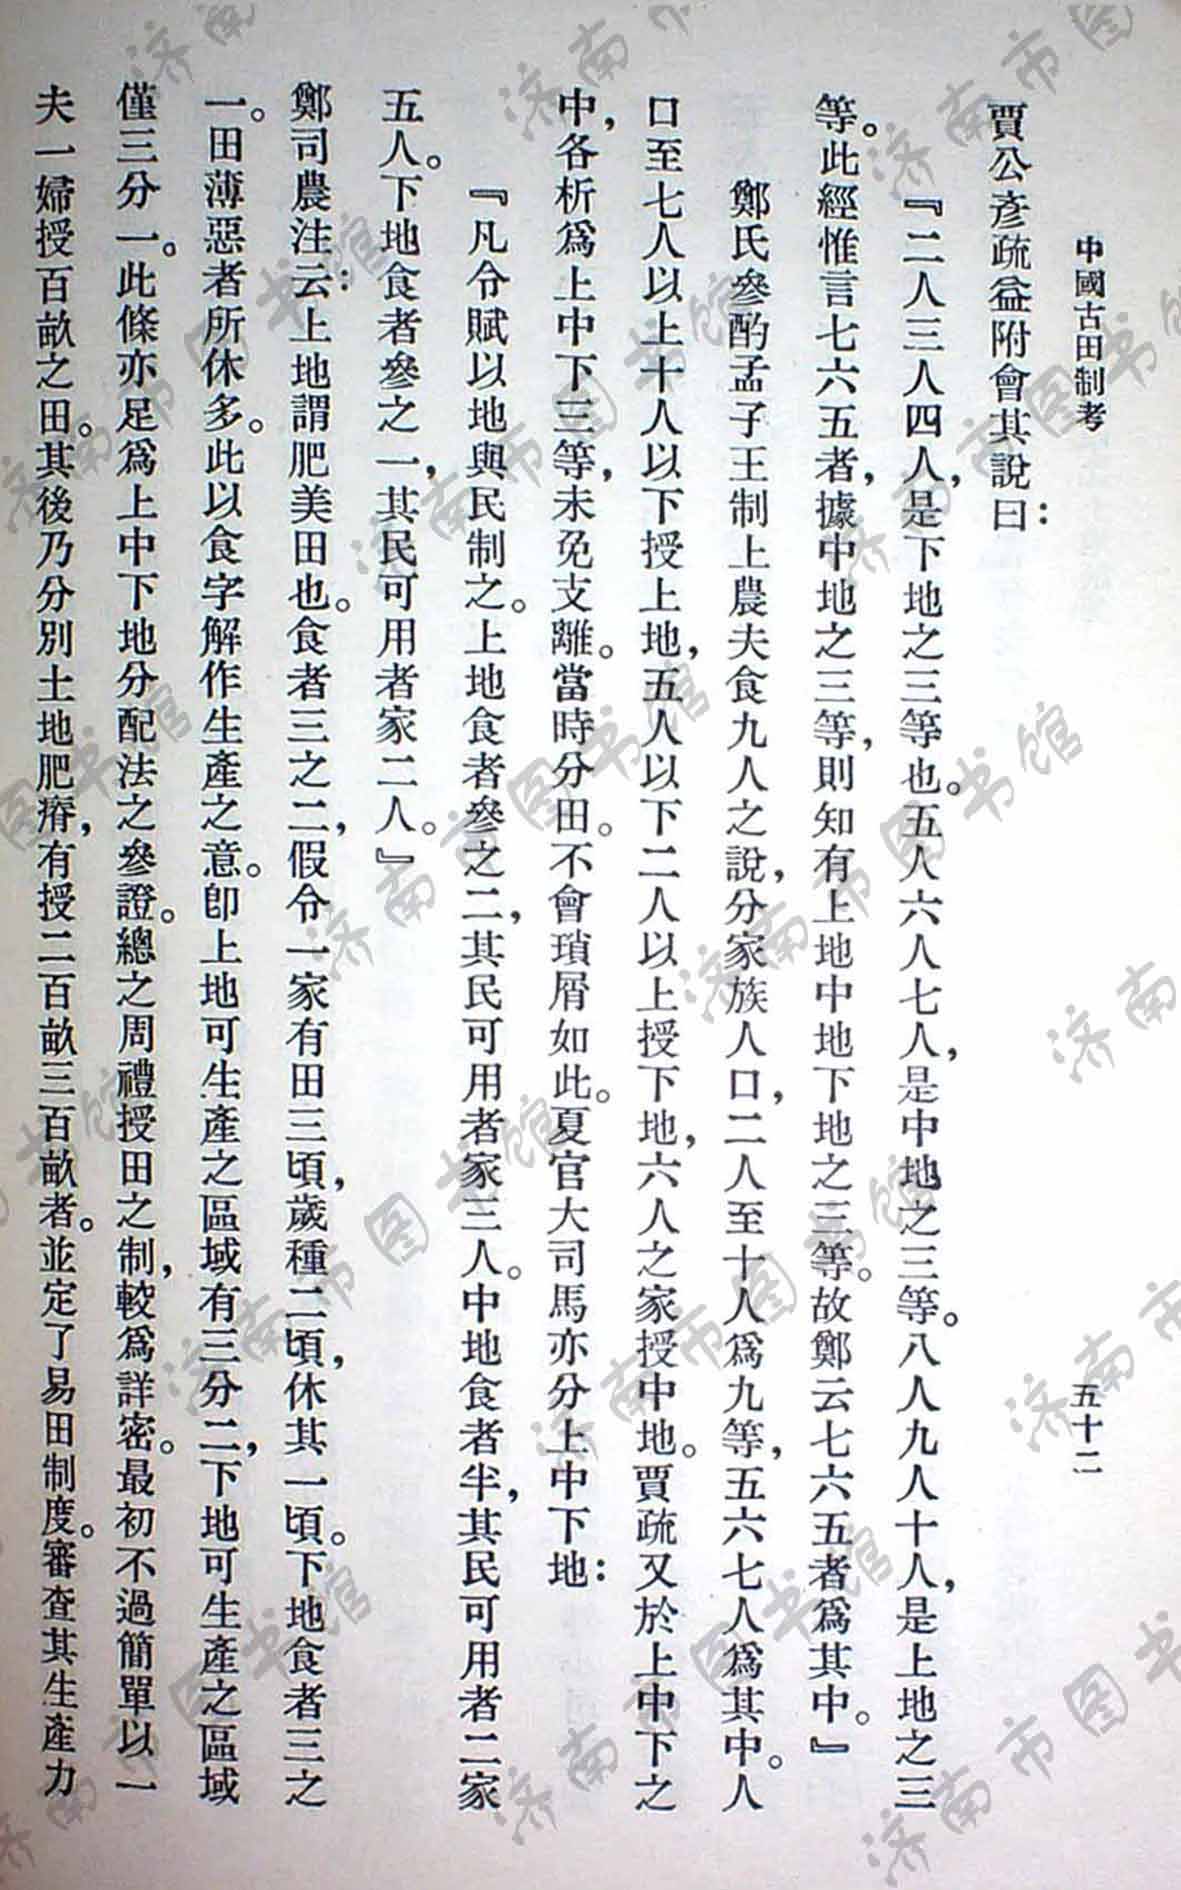 中國古田制考
五十二
賈公彥疏益附會其說曰：
『二人三人四人，是下地之三等也。五人六人七人，是中地之三等。八人九人十人，是上地之三
等。此經惟言七六五者，據中地之三等，則知有上地中地下地之三等。故鄭云七六五者爲其中。』
鄭氏參酌孟子王制上農夫食九人之說，分家族人口，二人至十人爲九等，五六七人爲其中。人
口至七人以上十人以下授上地，五人以下二人以上授下地，六人之家授中地。賈疏又於上中下之
中，各析爲上中下三等，未免支離。當時分田。不會瑣屑如此。夏官大司馬亦分上中下地：
『凡令賦以地與民制之。上地食者參之二，其民可用者家三人。中地食者半，其民可用者二家
五人。下地食者參之一，其民可用者家二人。』
鄭司農注云：上地謂肥美田也。食者三之二，假令一家有田三頃，歲種二頃，休其一頃。下地食者三之
一。田薄惡者所休多。此以食字解作生產之意。卽上地可生產之區域有三分二，下地可生產之區域
僅三分一。此條亦足爲上中下地分配法之參證。總之周禮授田之制，較爲詳密。最初不過簡單以一
夫一婦授百畝之田。其後乃分別土地肥瘠，有授二百畝三百畝者。並定了易田制度。審查其生產力
济南市图书馆